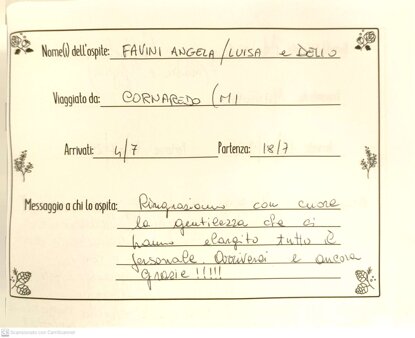 Nome(i) dell'ospite: FAVINI ANGELA/LUISA e DELIO
Viaggiato da: CORNAREDO (MI
Arrivati: 4/7 Partenza: 18/7
Messaggio a chi lo ospita: Ringraziamo con cuore
la gentilezza che ci
hanno elargito tutto il
personale. Arrivederci e ancora
Grazie !!!!!
Scansionato con CamScanner